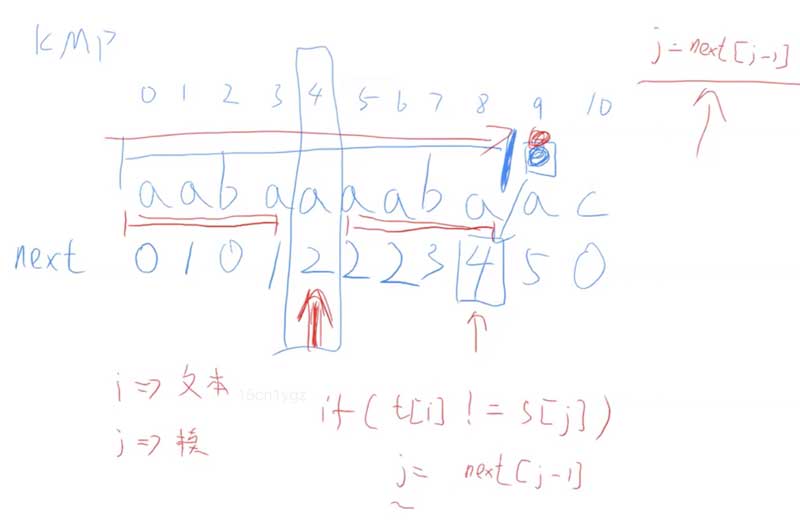 KMP
j = next[j-1]
0 1 2 3 4 5 6 7 8 9 10
a a b a a a a b a a c
next 0 1 0 1 2 2 2 3 4 5 0
i => 文本
16cn1ygz
if ( t[i] != s[j] )
j => 模
j = next[j-1]